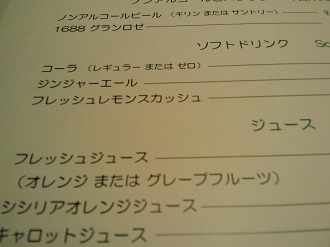 ノンアルコールビール （キリン または サントリー）
1688 グランロゼ
ソフトドリンク
コーラ （レギュラー または ゼロ）
ジンジャーエール
フレッシュレモンスカッシュ
ジュース
フレッシュジュース
（オレンジ または グレープフルーツ）
シシリアオレンジジュース
キャロットジュース